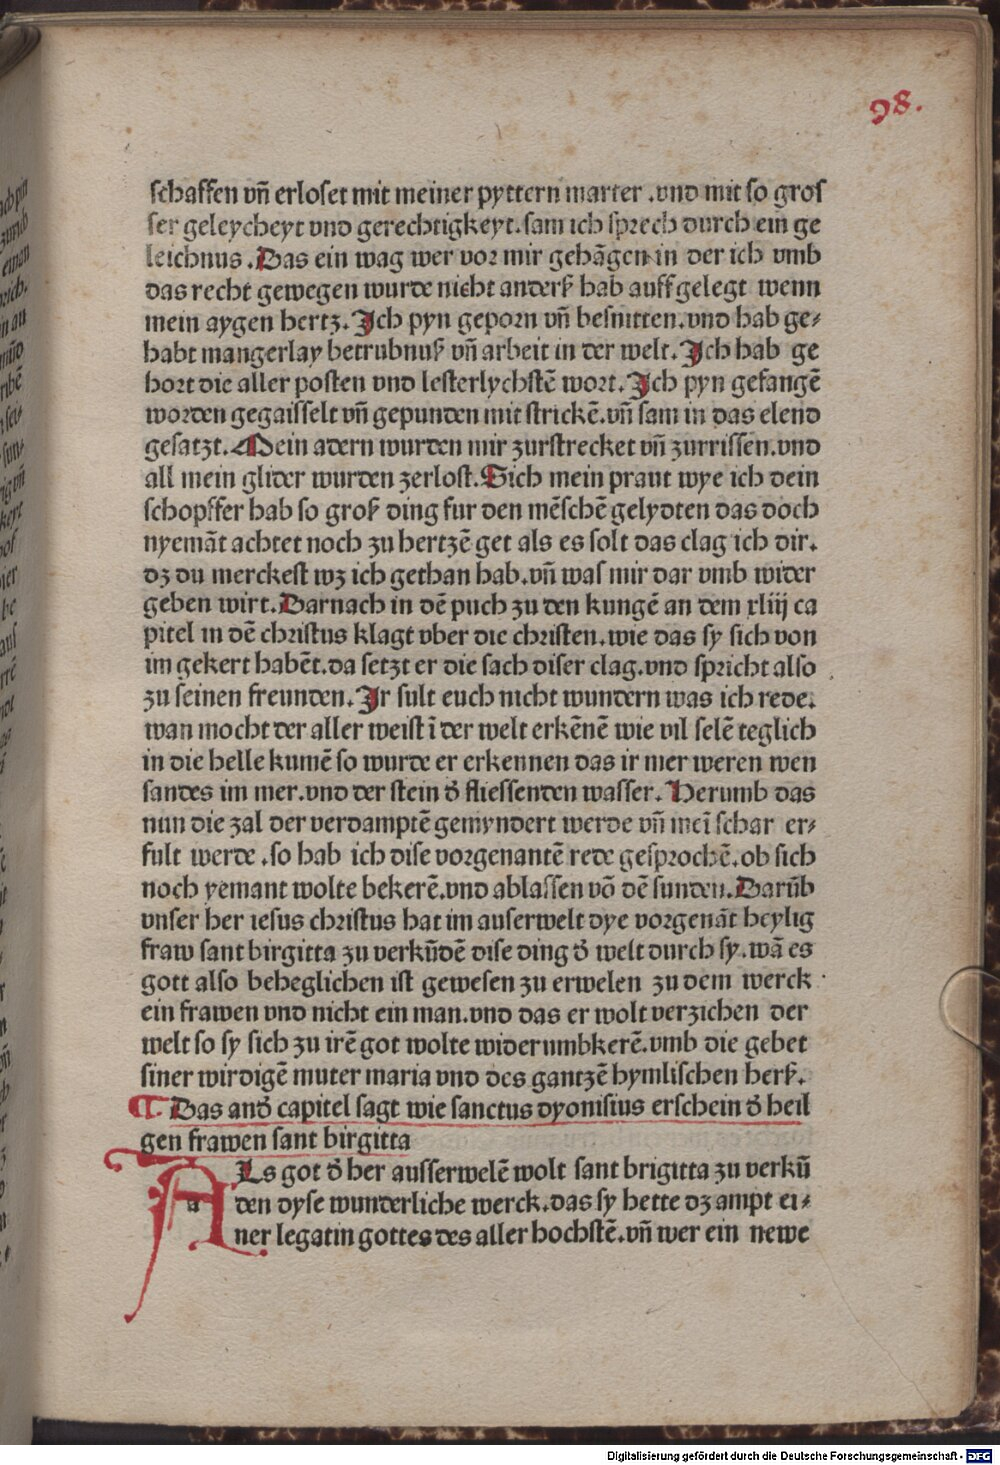 98.
schaffen vñ erloset mit meiner pyttern marter .vnd mit so gros
ser geleycheyt vnd gerechtigkeyt.sam ich sprech durch ein ge
leichnus .Das ein wag wer vor mir gehãgen in der ich vmb
das recht gewegen wurde nicht anderß hab auff gelegt wenn
mein aygen hertz.Ich pyn geporn vñ besnitten.vnd hab ge⸗
habt mangerlay betrubnuß vñ arbeit in der welt.Ich hab ge
hort die aller posten vnd lesterlychstẽ wort.Ich pyn gefangẽ
worden gegaisselt vñ gepunden mit strickẽ.vñ sam in das elend
gesatzt.Mein adern wurden mir zurstrecket vñ zurrissen.vnd
all mein glider wurden zerlost.Sich mein praut wye ich dein
schopffer hab so groß ding fur den mẽschẽ gelydten das doch
nyemãt achtet noch zu hertzẽ get als es solt das clag ich dir.
dz du merckest wz ich gethan hab.vñ was mir dar vmb wider
geben wirt.Darnach in dẽ puch zu den kungẽ an dem xliij ca
pitel in dẽ christus klagt vber die christen.wie das sy sich von
im gekert habẽt.da setzt er die sach diser clag.vnd spricht also
zu seinen freunden.Ir sult euch nicht wundern was ich rede.
wan mocht der aller weist ĩ der welt erkẽnẽ wie vil selẽ teglich
in die helle kumẽ so wurde er erkennen das ir mer weren wen
sandes im mer.vnd der stein d̃ fliessenden wasser. Herumb das
nun die zal der verdamptẽ gemyndert werde vñ meĩ schar er⸗
fult werde .so hab ich dise vorgenantẽ rede gesprochẽ.ob sich
noch yemant wolte bekerẽ.vnd ablassen võ dẽ sunden.Darũb
vnser her iesus christus hat im auserwelt dye vorgenãt heylig
fraw sant birgitta zu verkũdẽ dise ding d̃ welt durch sy.wã es
gott also beheglichen ist gewesen zu erwelen zu dem werck
ein frawen vnd nicht ein man.vnd das er wolt verzichen der
welt so sy sich zu irẽ got wolte wider umbkerẽ.vmb die gebet
siner wirdigẽ muter maria vnd des gantzẽ hymlischen herß.
¶ Das and̃ capitel sagt wie sanctus dyonisius erschein d̃ heil
gen frawen sant birgitta
ALs got d̃ her ausserwelẽ wolt sant brigitta zu verkũ
den dyse wunderliche werck.das sy hette dz ampt ei⸗
ner legatin gottes des aller hochstẽ.vñ wer ein newe
Digitalisierung gefördert durch die Deutsche Forschungsgemeinschaft - DFG